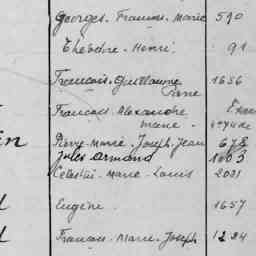 Georges. Francois. Marie 590
Théodore. Henri 91
François. Guillaume 1656
Pierre
François Alexandre
Marie
in Pierre-Marie. Joseph. Jean 678
Jules Armand 1003
Célestin. Marie. Louis 2031
Eugène 1657
François. Marie. Joseph 1224